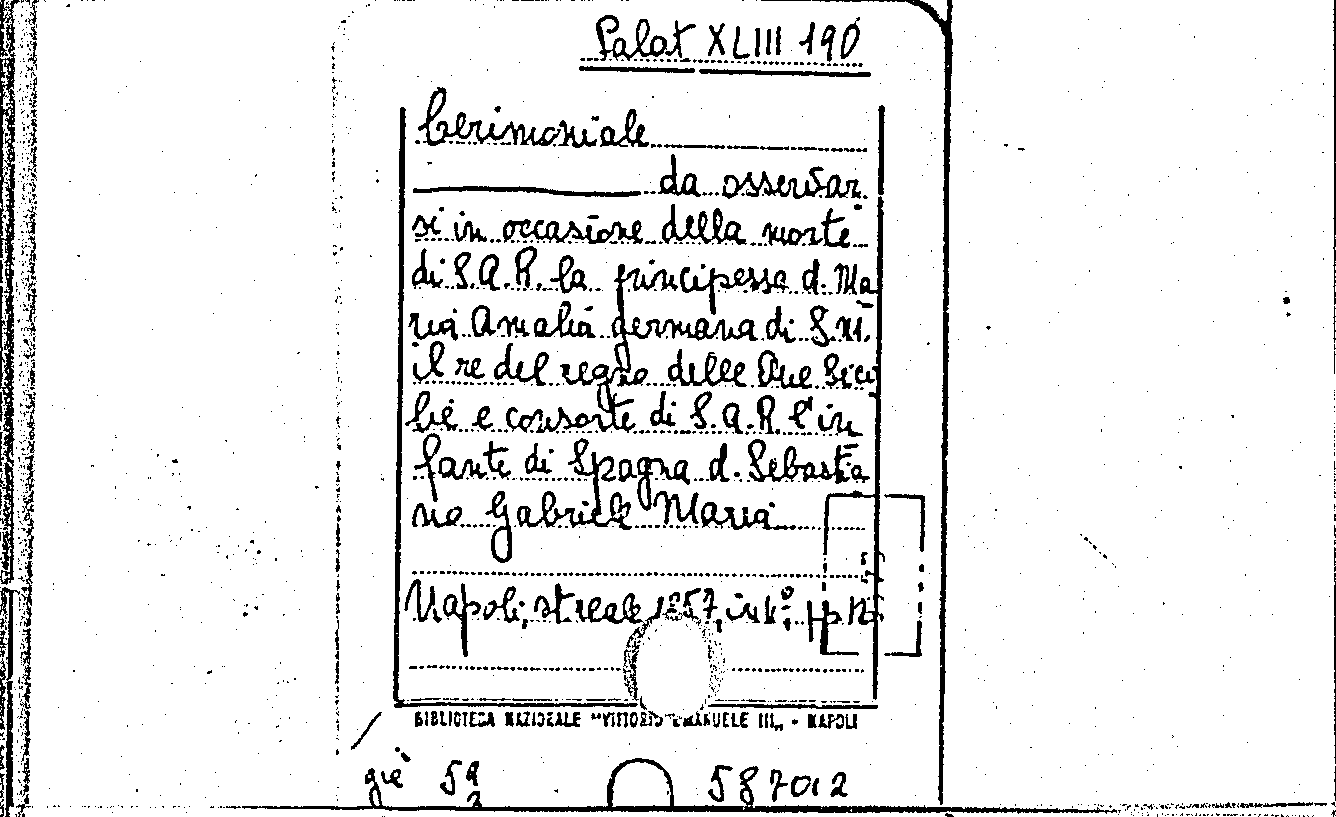 Palat XLIII 190
Cerimoniale
da osservar
si in occasione della morte
di S.A.R. la principessa d. Ma
ria Amalia germana di S.M.
il re del regno delle Due Sici
lie e consorte di S.A.R. l'in
fante di Spagna d. Sebastia
no Gabriele Maria
Napoli, st. reale, 1857, in 4°, pp.
BIBLIOTECA NAZIONALE "VITTORIO EMANUELE III„ - NAPOLI
già 59
587012